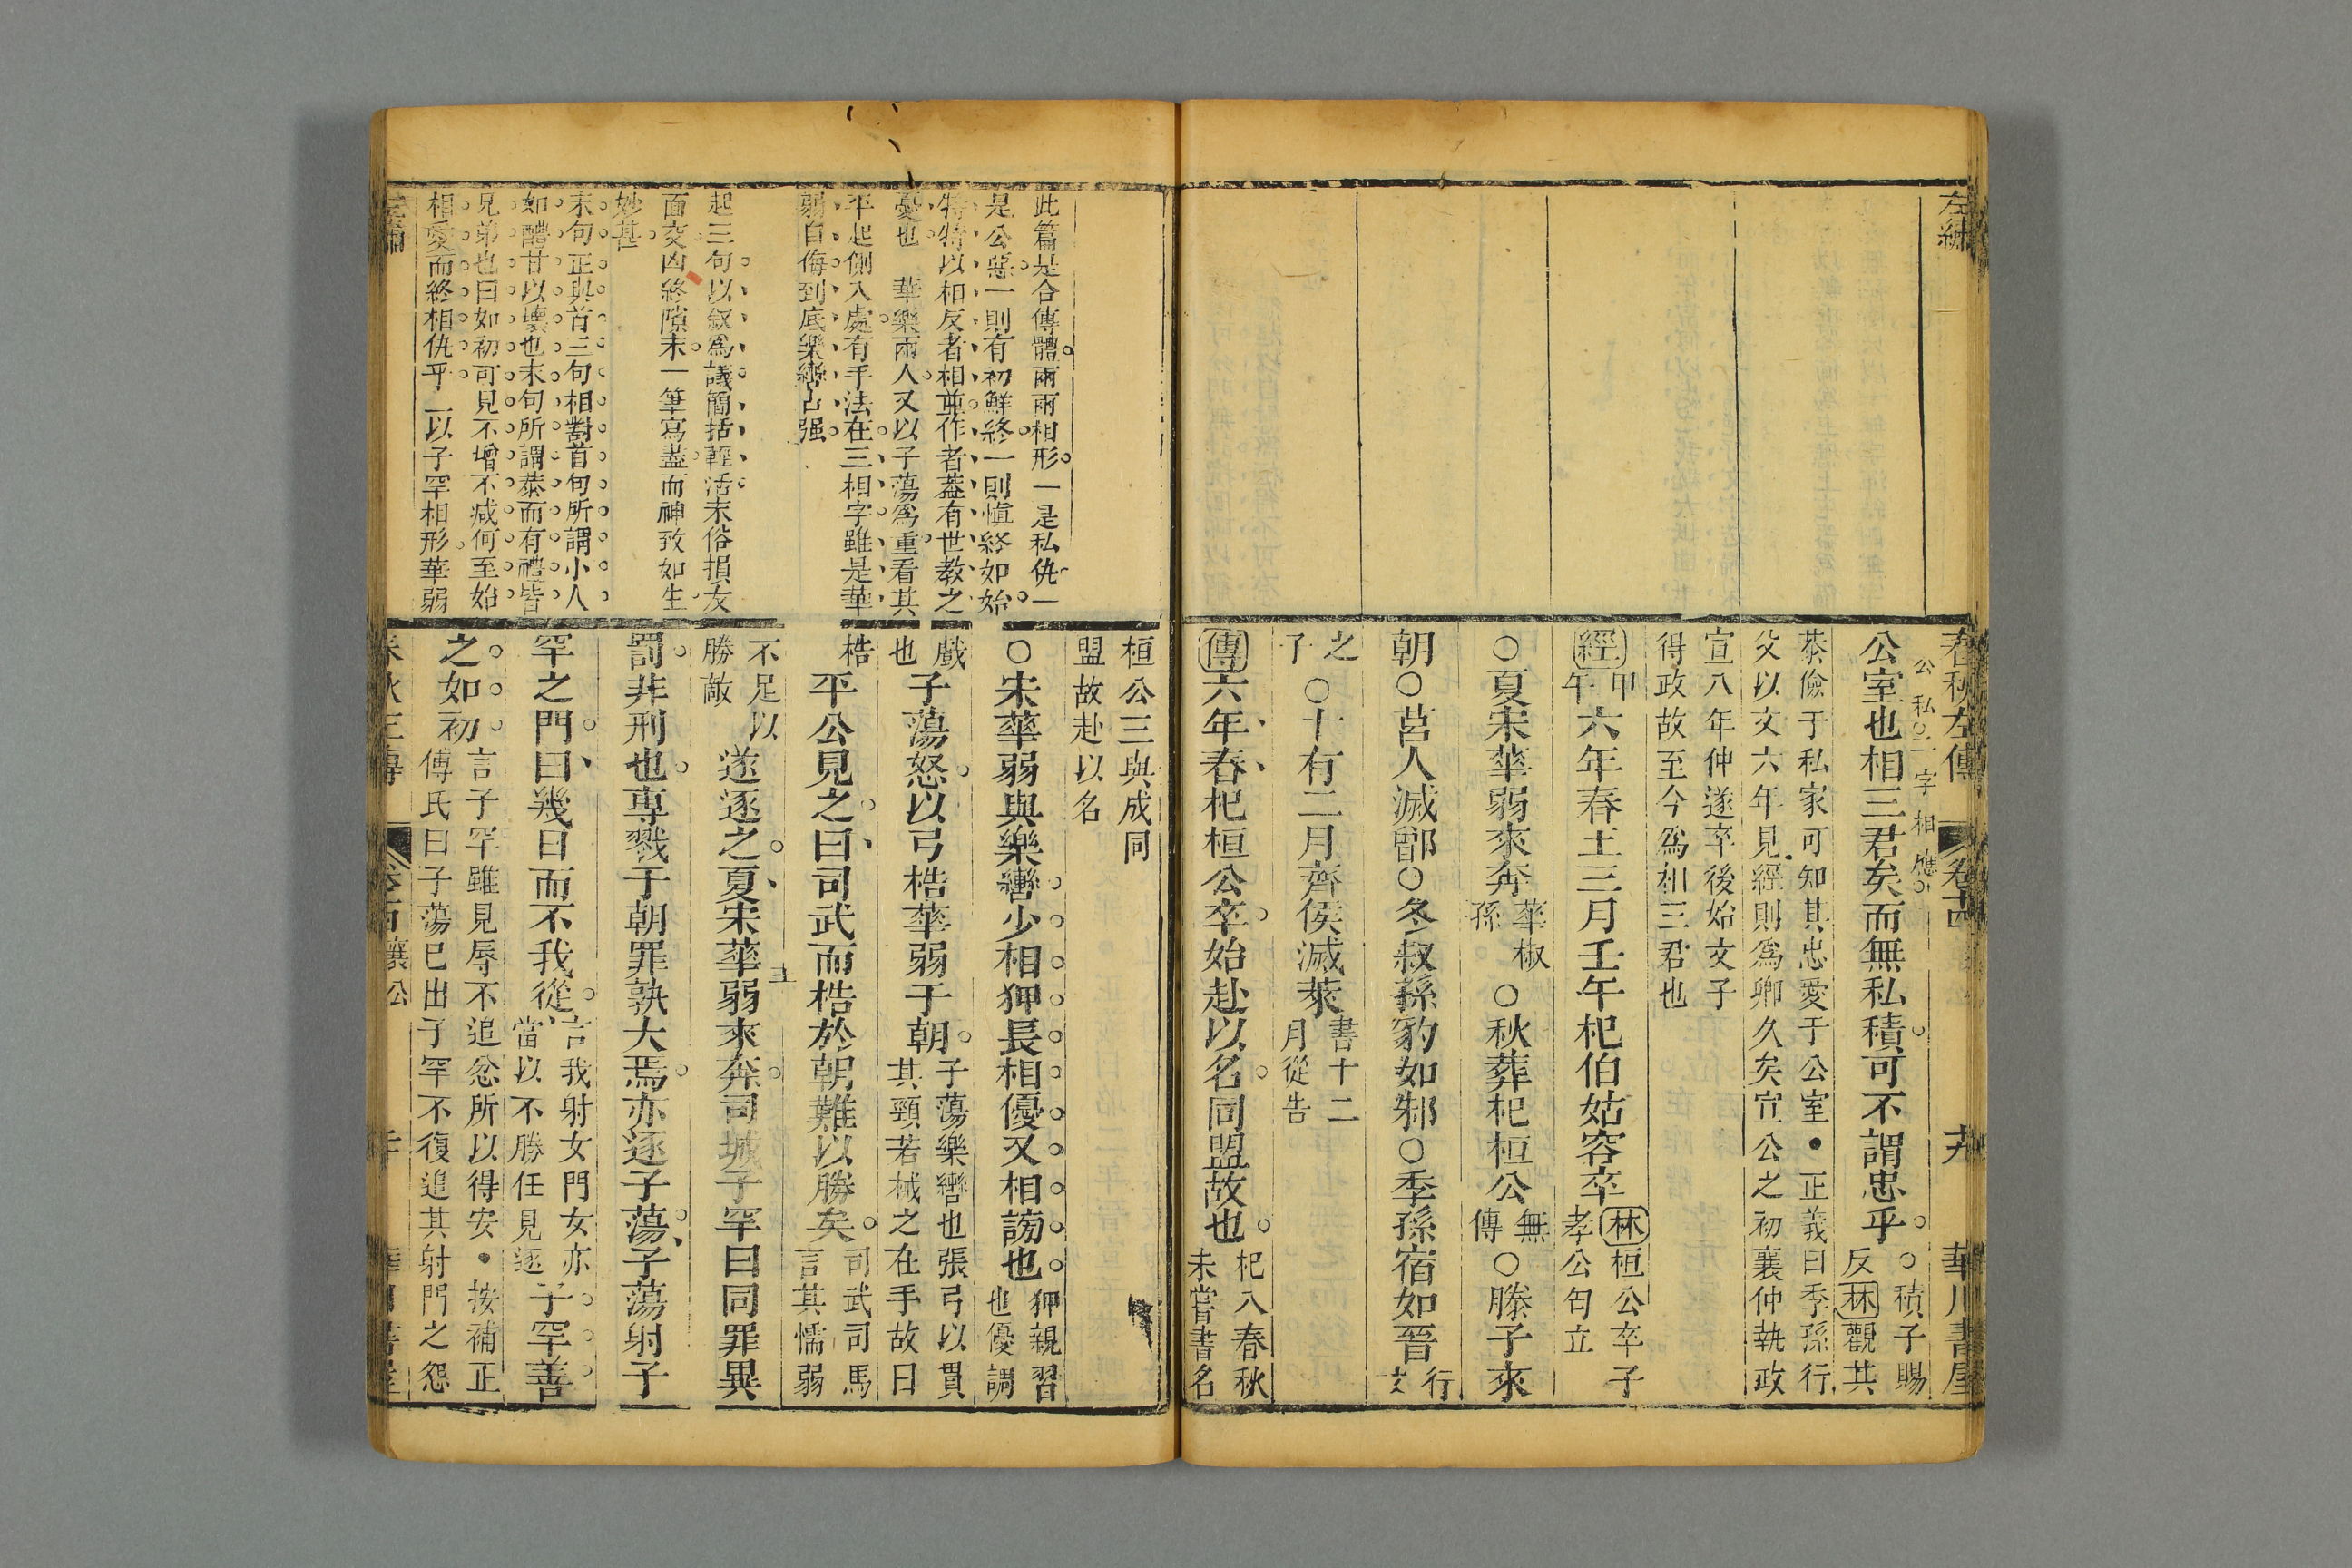 左繡
春秋左傳
卷十四
華川書屋
公私二字相應
公室也相三君矣而無私積可不謂忠乎
○積子賜
反林觀其
恭儉于私家可知其忠愛于公室●正義曰季孫行
父以文六年見經則爲卿久矣宣公之初襄仲執政
宣八年仲遂卒後始文子
得政故至今爲相三君也
經
甲
午
六年春王三月壬午杞伯姑容卒
林桓公卒子
孝公匄立
○夏宋華弱來奔
華椒
孫
○秋葬杞桓公
無
傳
○滕子來
朝○莒人滅鄫○冬叔孫豹如邾○季孫宿如晉
行
父
之
子
○十有二月齊侯滅萊
書十二
月從告
傳六年春杞桓公卒始赴以名同盟故也
杞入春秋
未嘗書名
桓公三與成同
盟故赴以名
此篇是合傳體兩兩相形一是私仇一
是公惡一則有初鮮終一則愼終如始
特特以相反者相並作者葢有世教之
憂也 華樂兩人又以子蕩爲重看其
平起側入處有手法在三相字雖是華
弱自侮到底樂轡占强
起三句以敘爲議簡括輕活末俗損友
面交凶終隙末一筆寫盡而神致如生
妙甚
末句正與首三句相對首句所謂小人
如醴甘以壞也末句所謂恭而有禮皆
兄弟也曰如初可見不增不減何至始
相愛而終相仇乎 以子罕相形華弱
○宋華弱與樂轡少相狎長相優又相謗也
狎親習
也優調
戲
也
子蕩怒以弓梏華弱于朝
子蕩樂轡也張弓以貫
其頸若械之在手故曰
梏
平公見之曰司武而梏於朝難以勝矣
司武司馬
言其懦弱
不足以
勝敵
遂逐之夏宋華弱來奔司城子罕曰同罪異
罰非刑也專戮于朝罪孰大焉亦逐子蕩子蕩射子
罕之門曰幾日而不我從
言我射女門女亦
當以不勝任見逐
子罕善
之如初
言子罕雖見辱不追忿所以得安●按補正
傅氏曰子蕩已出子罕不復追其射門之怨
左繡
春秋左傳
襄公